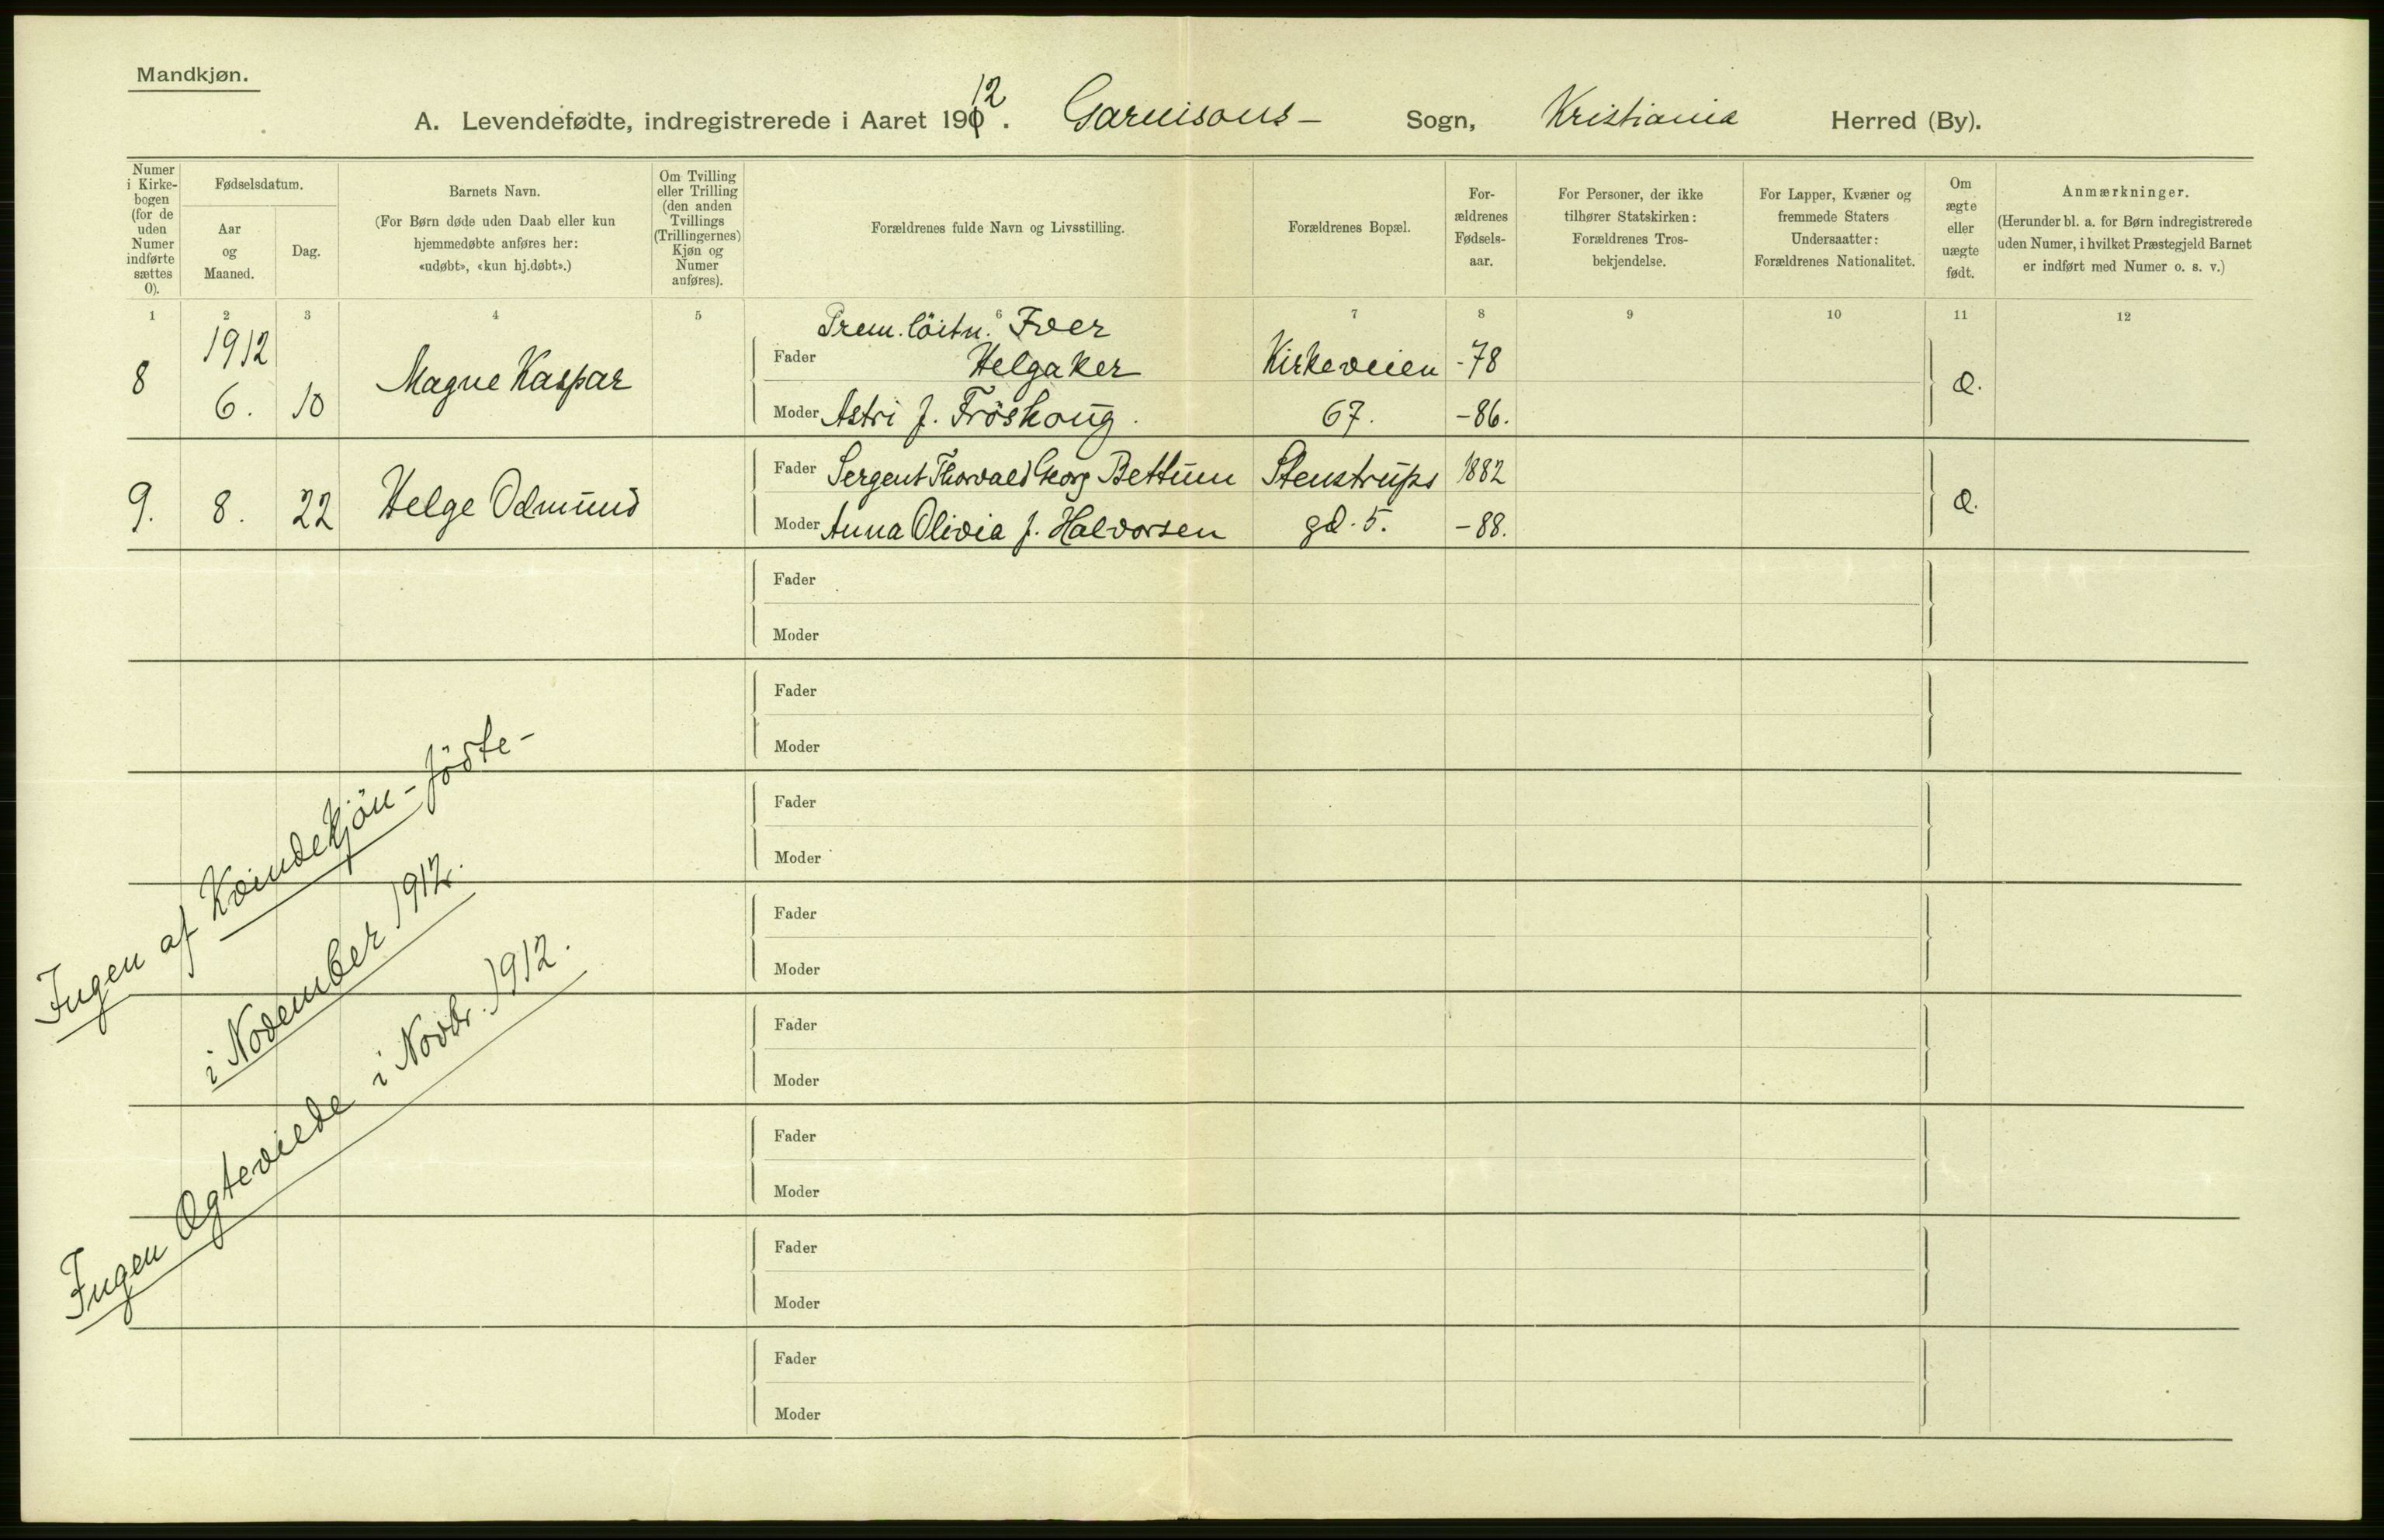 Mandkjøn.
A. Levendefødte, indregistrerede i Aaret 1912. Garnisons- Sogn, Kristiania Herred (By).
Numer i Kirke-bogen (for de uden Numer indførte sættes 0).
Fødselsdatum.
Aar og Maaned.
Dag.
Barnets Navn.
(For Børn døde uden Daab eller kun hjemmedøbte anføres her: «udøbt», «kun hj.døbt».)
Om Tvilling eller Trilling (den anden Tvillings (Trillingernes) Kjøn og Numer anføres).
Forældrenes fulde Navn og Livsstilling.
Forældrenes Bopæl.
For-ældrenes Fødsels-aar.
For Personer, der ikke tilhører Statskirken: Forældrenes Tros-bekjendelse.
For Lapper, Kvæner og fremmede Staters Undersaatter: Forældrenes Nationalitet.
Om ægte eller uægte født.
Anmærkninger.
(Herunder bl. a. for Børn indregistrerede uden Numer, i hvilket Præstegjeld Barnet er indført med Numer o. s. v.)
1 2 3 4 5 6 7 8 9 10 11 12
1912
8 6. 10 Magne Kaspar
Prem. löitn. Iver
Fader Helgaker Kirkeveien -78
Moder Astri f. Fröshoug. 67. -86.
Æ.
9. 8. 22 Helge Odmund
Fader Sergent Thorvald Georg Bettum Stenstrups 1882
Moder Anna Olivia f. Halvorsen gd. 5. -88.
Æ.
Fader
Moder
Fader
Moder
Fader
Moder
Fader
Moder
Fader
Moder
Fader
Moder
Fader
Moder
Fader
Moder
Ingen af Kvindekjön - födte -
i November 1912.
Ingen Ægteviede i Novbr. 1912.